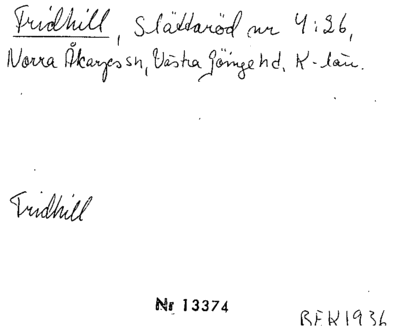 Fridhill, Slättaröd nr 4:26,
Norra Åkarps sn, Västra Göinge hd, K-län.
Fridhill
Nr 13374
BFR 1936